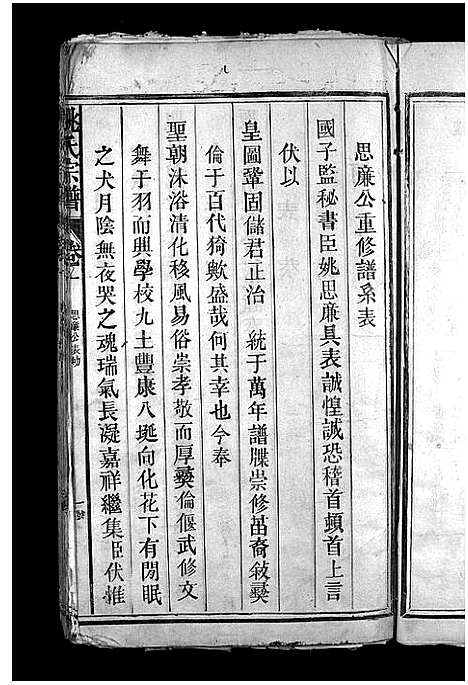 思廉公重修譜系表
國子監秘書臣姚思廉具表誠惶誠恐稽首頓首上言
伏以
皇圖鞏固儲君正治 統于萬年譜牒崇修苗裔敍彛
倫于百代猗歟盛哉何其幸也今奉
聖朝沐浴清化移風易俗崇孝敬而厚彛倫偃武修文
舞于羽而興學校九土豐康八埏向化花下有閒眠
之犬月陰無夜哭之魂瑞氣長凝嘉祥繼集臣伏雖
姚氏宗譜
卷之
思廉公表
一